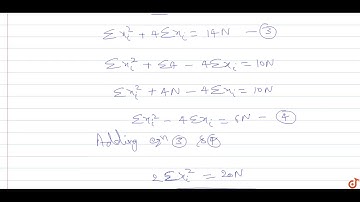 Σxᵢ² + 4Σxᵢ = 14N — ③
Σxᵢ² + Σ4 - 4Σxᵢ = 10N
Σxᵢ² + 4N - 4Σxᵢ = 10N
Σxᵢ² - 4Σxᵢ = 6N — ④
Adding eqⁿ ③ & ④
2Σxᵢ² = 20N